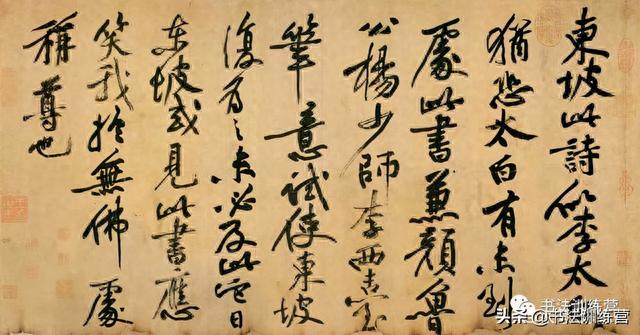 東坡此詩似李太
猶恐太白有未到
處此書兼顏魯
公楊少師李西臺
筆意試使東坡
復為之未必及此它日
東坡或見此書應
笑我於無佛處
稱尊也
书法训练营
头条 @书法训练营